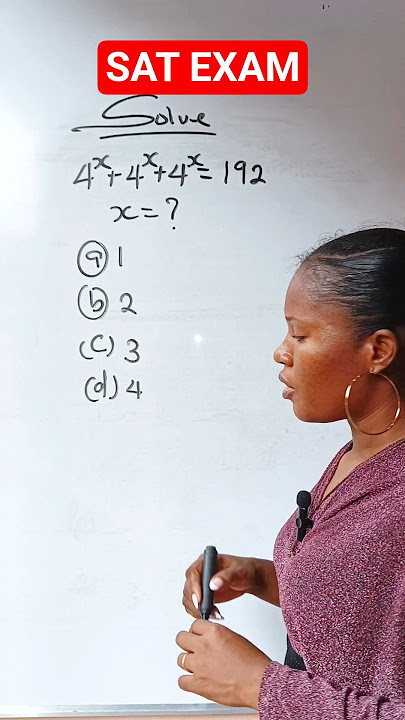 SAT EXAM
Solve
4^x + 4^x + 4^x = 192
x = ?
(a) 1
(b) 2
(c) 3
(d) 4